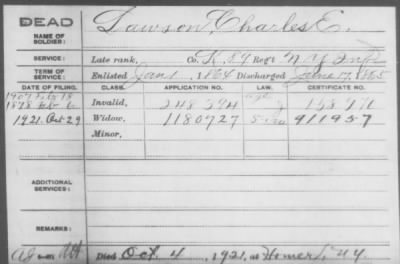 DEAD
NAME OF SOLDIER: Lawson, Charles E.
SERVICE: Late rank, Co. K, 89 Reg't N.Y. Inf
TERM OF SERVICE: Enlisted Jan 1, 1864 Discharged June 17, 1865
DATE OF FILING. CLASS. APPLICATION NO. LAW. CERTIFICATE NO.
1907 Feb 18
1878 Invalid, 248394
1921. Oct 29 Widow, 1180727 911957
Minor,
ADDITIONAL SERVICES:
REMARKS:
Died Oct 4, 1921, at Homer N.Y.